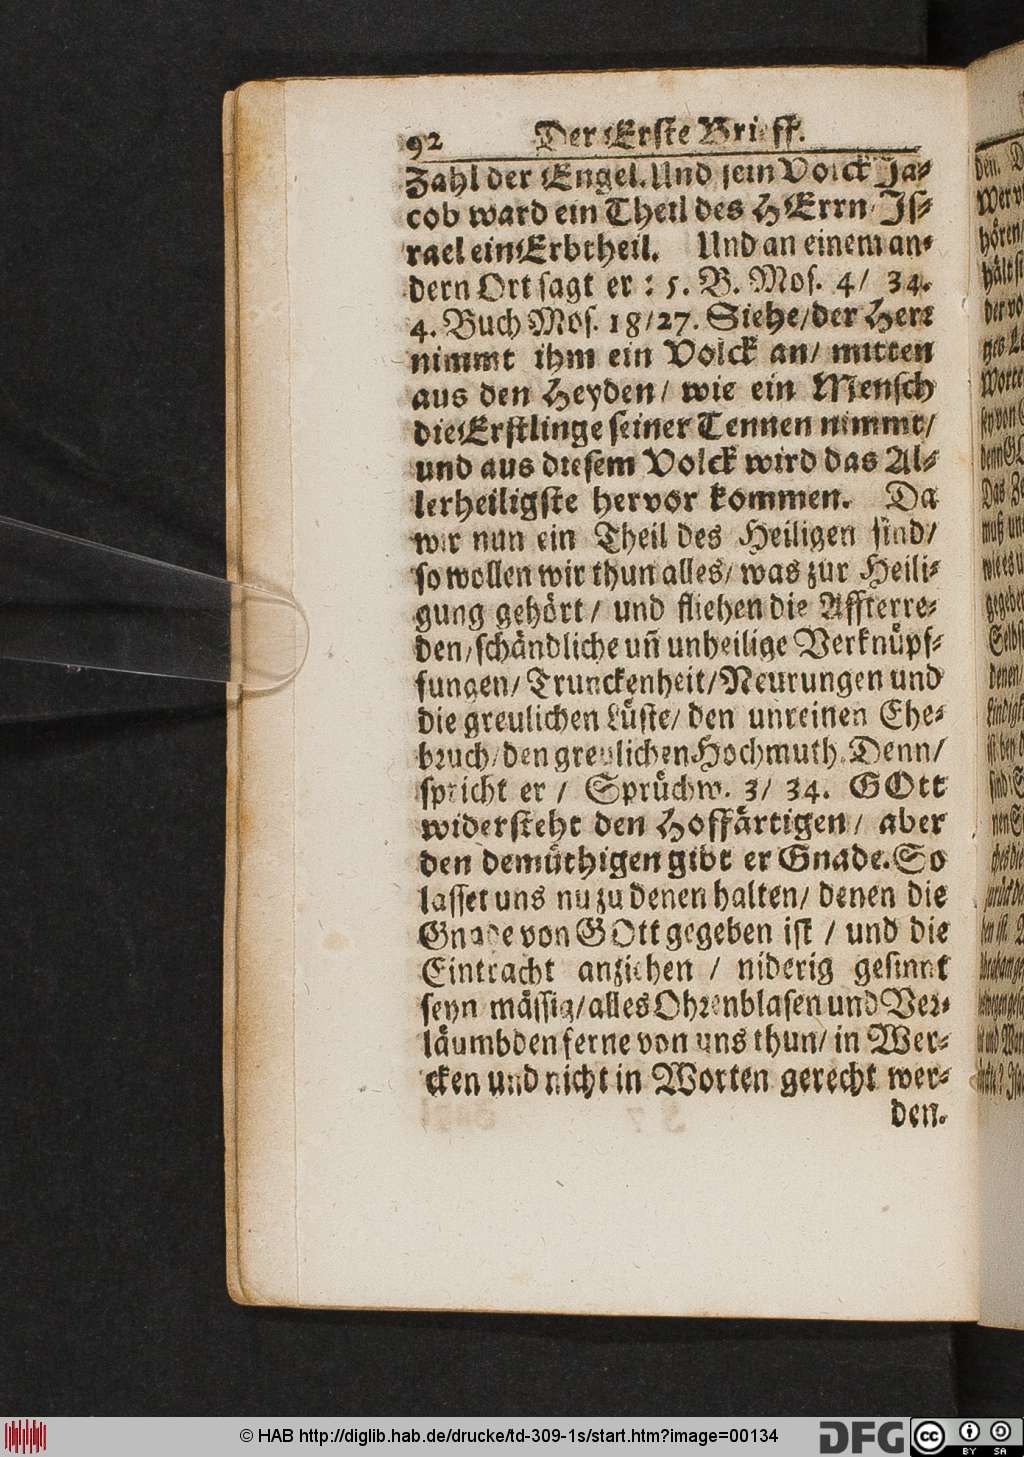 92 Der Erste Brieff.
Zahl der Engel. Und sein Volck Ja-
cob ward ein Theil des HErrn / Js-
rael ein Erbtheil. Und an einem an-
dern Ort sagt er : 5. B. Mos. 4/ 34.
4. Buch Mos. 18/27. Siehe/der Herr
nimmt ihm ein Volck an/ mitten
aus den Heyden/ wie ein Mensch
die Erstlinge seiner Tennen nimmt/
und aus diesem Volck wird das Al-
lerheiligste hervor kommen. Da
wir nun ein Theil des Heiligen sind/
so wollen wir thun alles/ was zur Heili-
gung gehört/ und fliehen die Affterre-
den/schändliche uñ unheilige Verknüpf-
fungen/ Trunckenheit/Neurungen und
die greulichen Lüste/ den unreinen Ehe-
bruch/den greulichen Hochmuth. Denn/
spricht er / Sprüchw. 3/ 34. GOtt
widersteht den Hoffärtigen/ aber
den demüthigen gibt er Gnade. So
lasset uns nu zu denen halten/ denen die
Gnade von GOtt gegeben ist / und die
Eintracht anziehen / niderig gesinnt
seyn mässig/alles Ohrenblasen und Ver-
läumbden ferne von uns thun/ in Wer-
cken und nicht in Worten gerecht wer-
den.
den. D
Wer v
hören/
hält s
der vo
ges Le
Worte
sey von
denn G
Das Ze
muß un
wie es u
gegeben
Selbst
denen/
© HAB http://diglib.hab.de/drucke/td-309-1s/start.htm?image=00134
DFG
cc BY SA